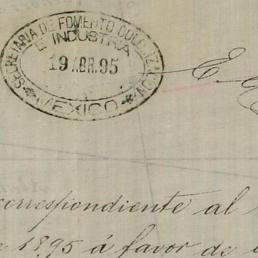 SECRETARIA DE FOMENTO COLONIZACION
E INDUSTRIA
19 ABR. 95
MEXICO
correspondiente al
1895 á favor de